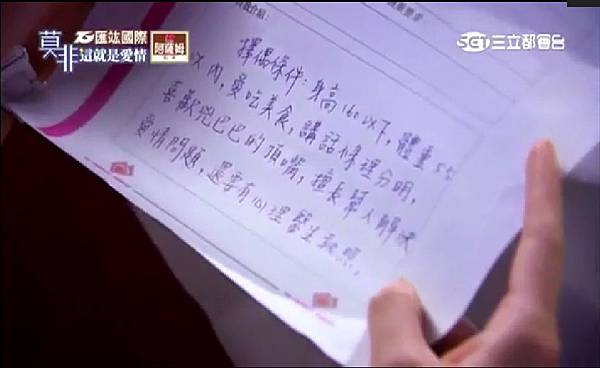 莫非
這就是愛情
匯竑國際
阿薩姆
SET三立都會台
擇偶條件：身高160以下，體重50
以內，愛吃美食，講話條理分明，
喜歡兇巴巴的頂嘴，擅長幫人解決
愛情問題，還要有心理醫生執照。